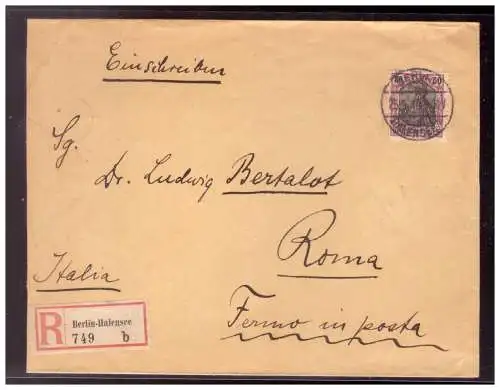 Einschreiben
Sg.
Dr. Ludwig Bertalot
Roma
Italia
Fermo in posta
R
Berlin-Halensee
749 b